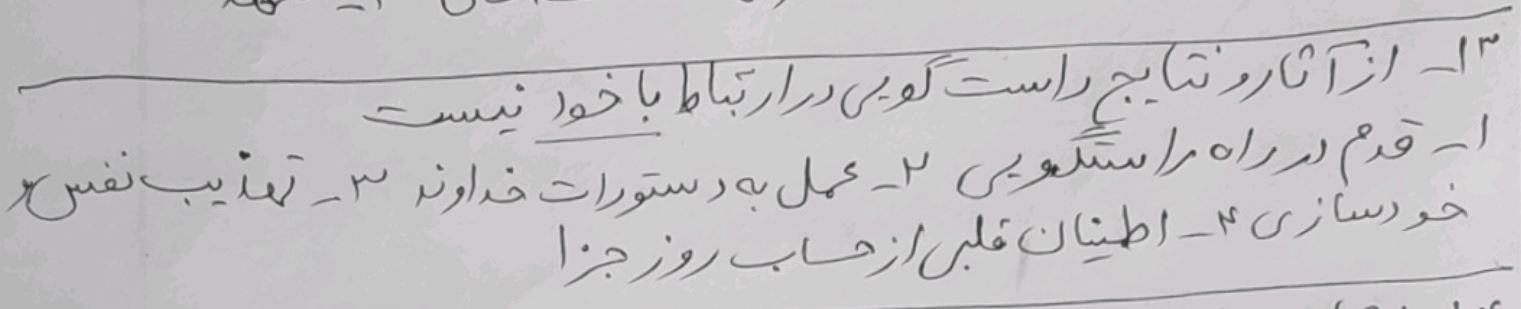 ۱۳- از آثار و نتایج راست گویی در ارتباط با خود نیست
۱- قدم در راه راستگویی ۲- عمل به دستورات خداوند ۳- تهذیب نفس و
خودسازی ۴- اطینان قلبی از حساب روز جزا